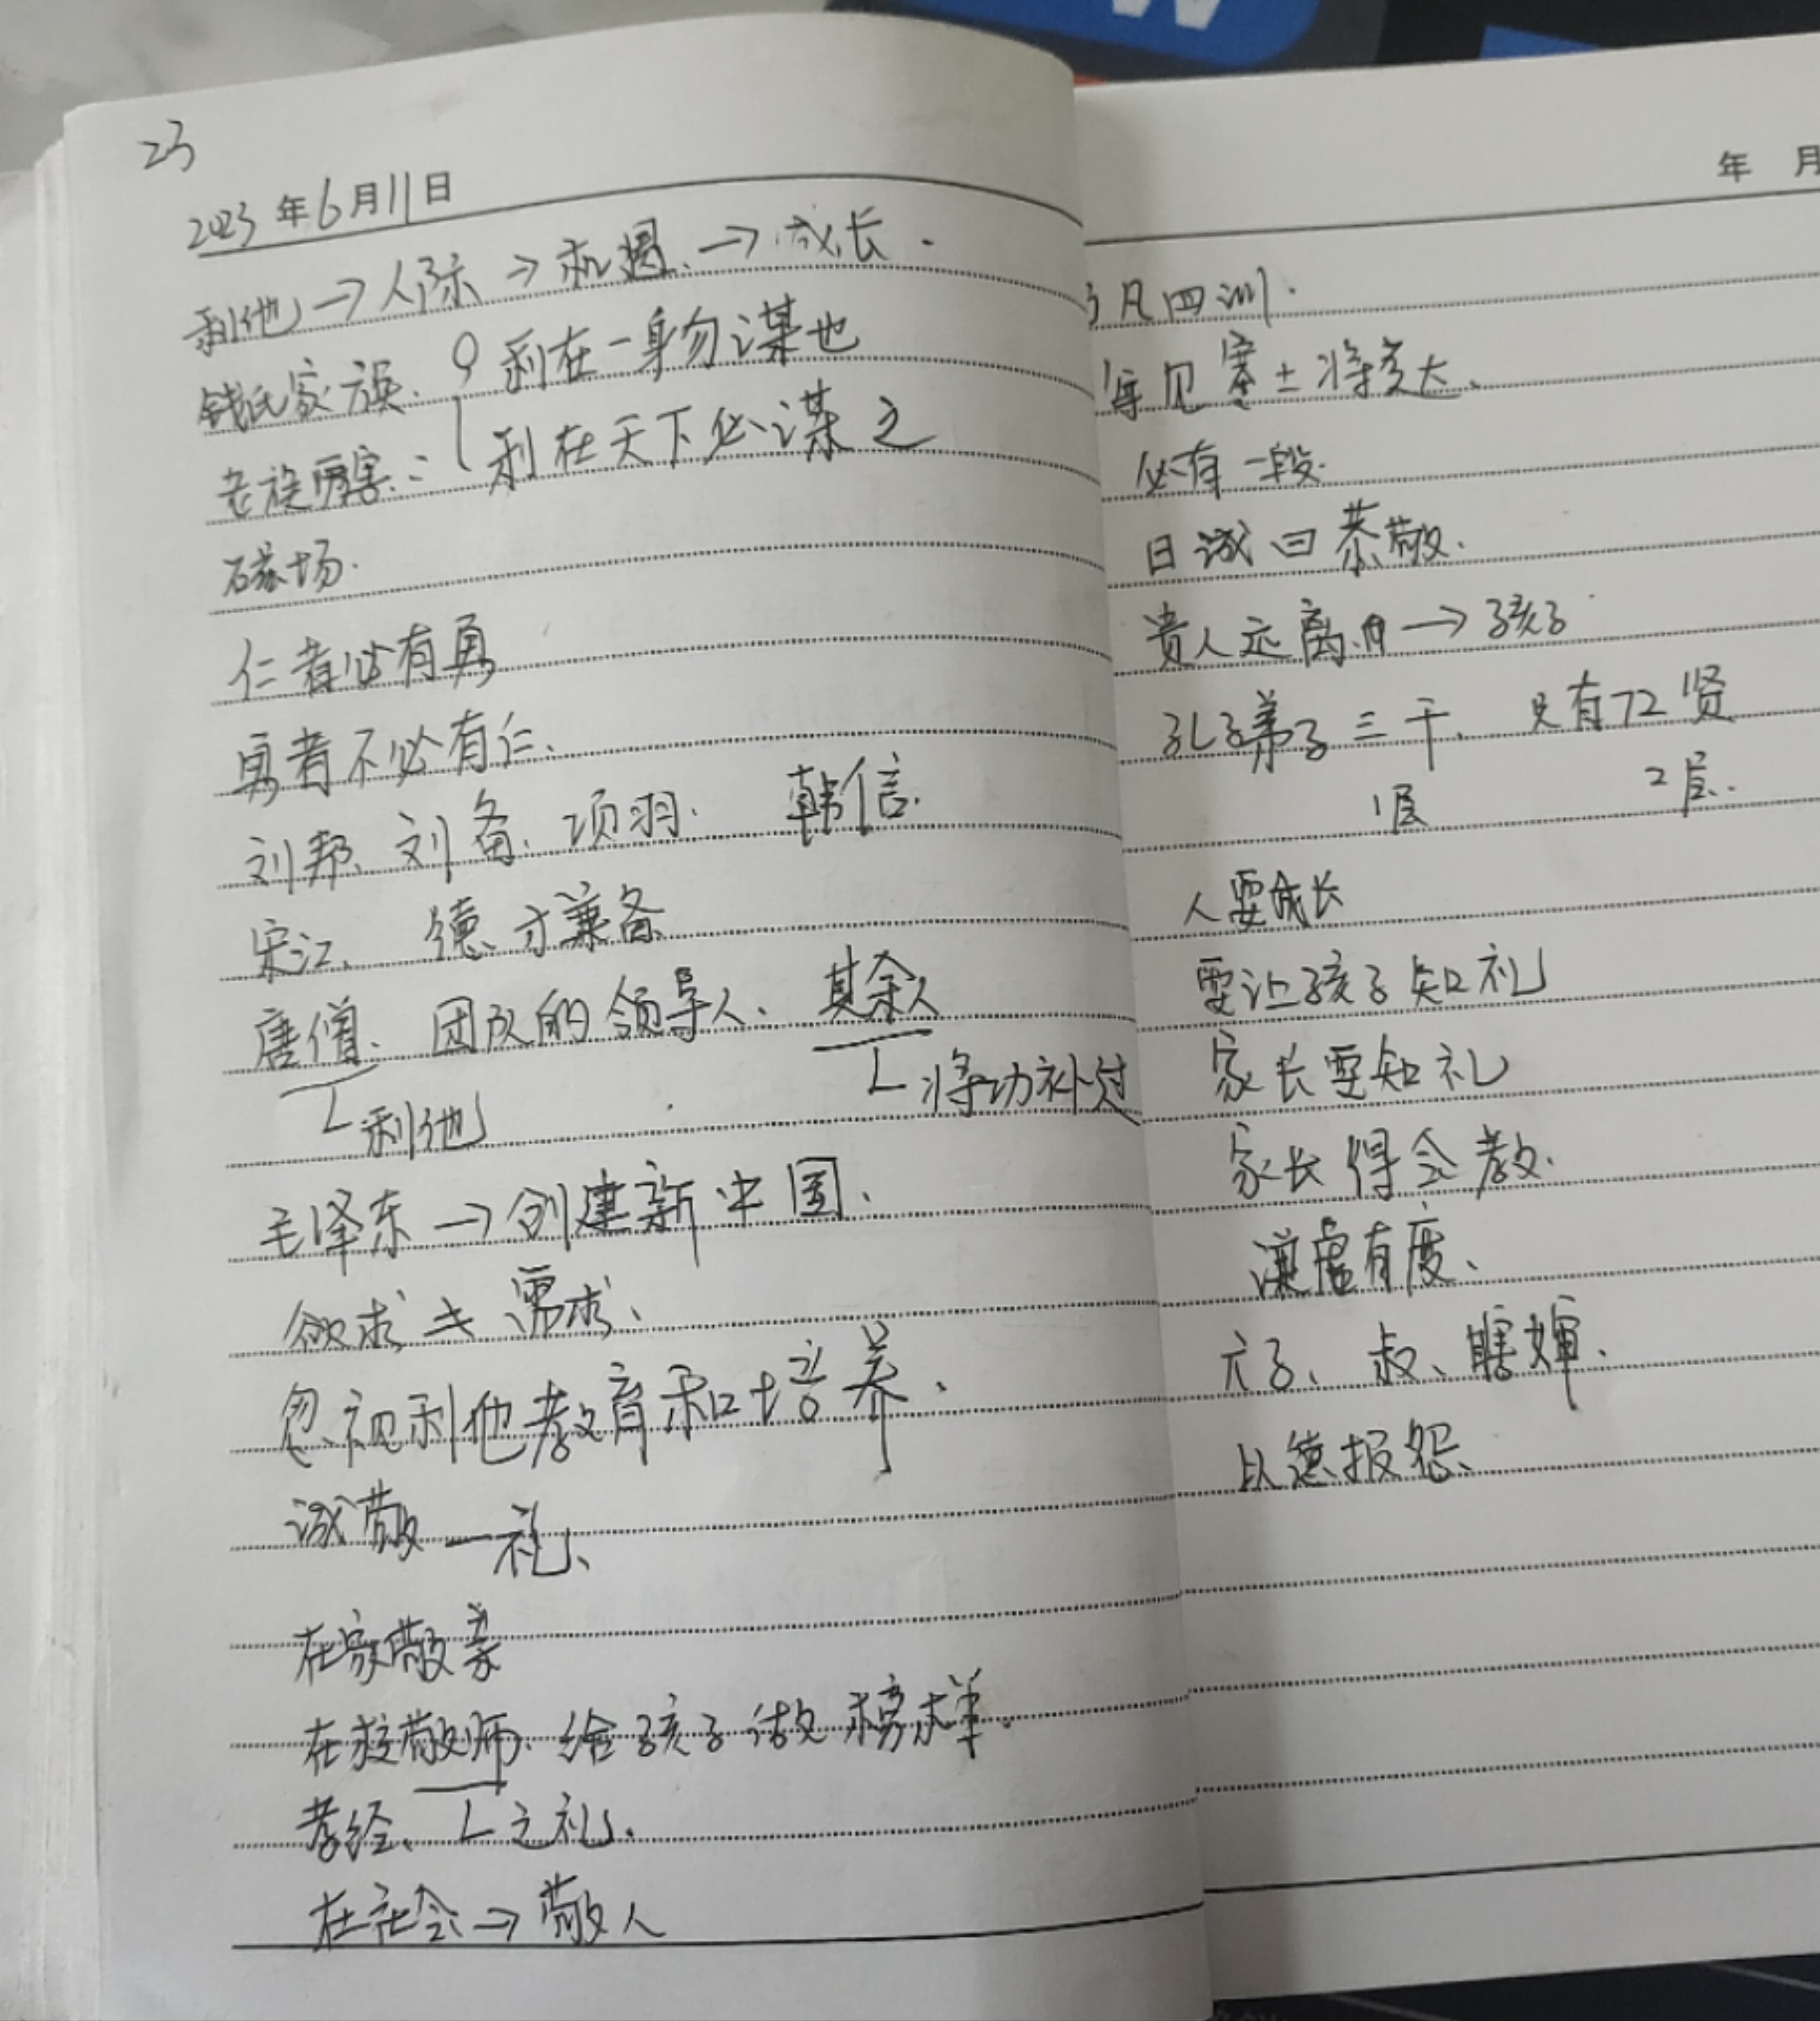 W
23
2023年6月11日
利他→人际→机遇→成长.
钱氏家族. 利在一身勿谋也
老族厉害: 利在天下必谋之
磁场.
仁者必有勇
勇者不必有仁、
刘邦、刘备、项羽. 韩信.
宋江、 德才兼备
唐僧、团队的领导人、其余人
利他 将功补过
毛泽东→创建新中国.
欲求 需求、
忽视利他教育和培养.
诚敬—礼、
在家敬亲
在校敬师. 给孩子做榜样.
孝经、 之礼.
在社会→敬人
年 月
了凡四训.
每见寒士将发达、
必有一段
曰诚曰恭敬.
贵人远离 →孩子
孔子弟子三千. 只有72贤
1层 2层.
人要成长
要让孩子知礼
家长要知礼
家长得会教.
谦虚有度、
婶.
以德报怨、